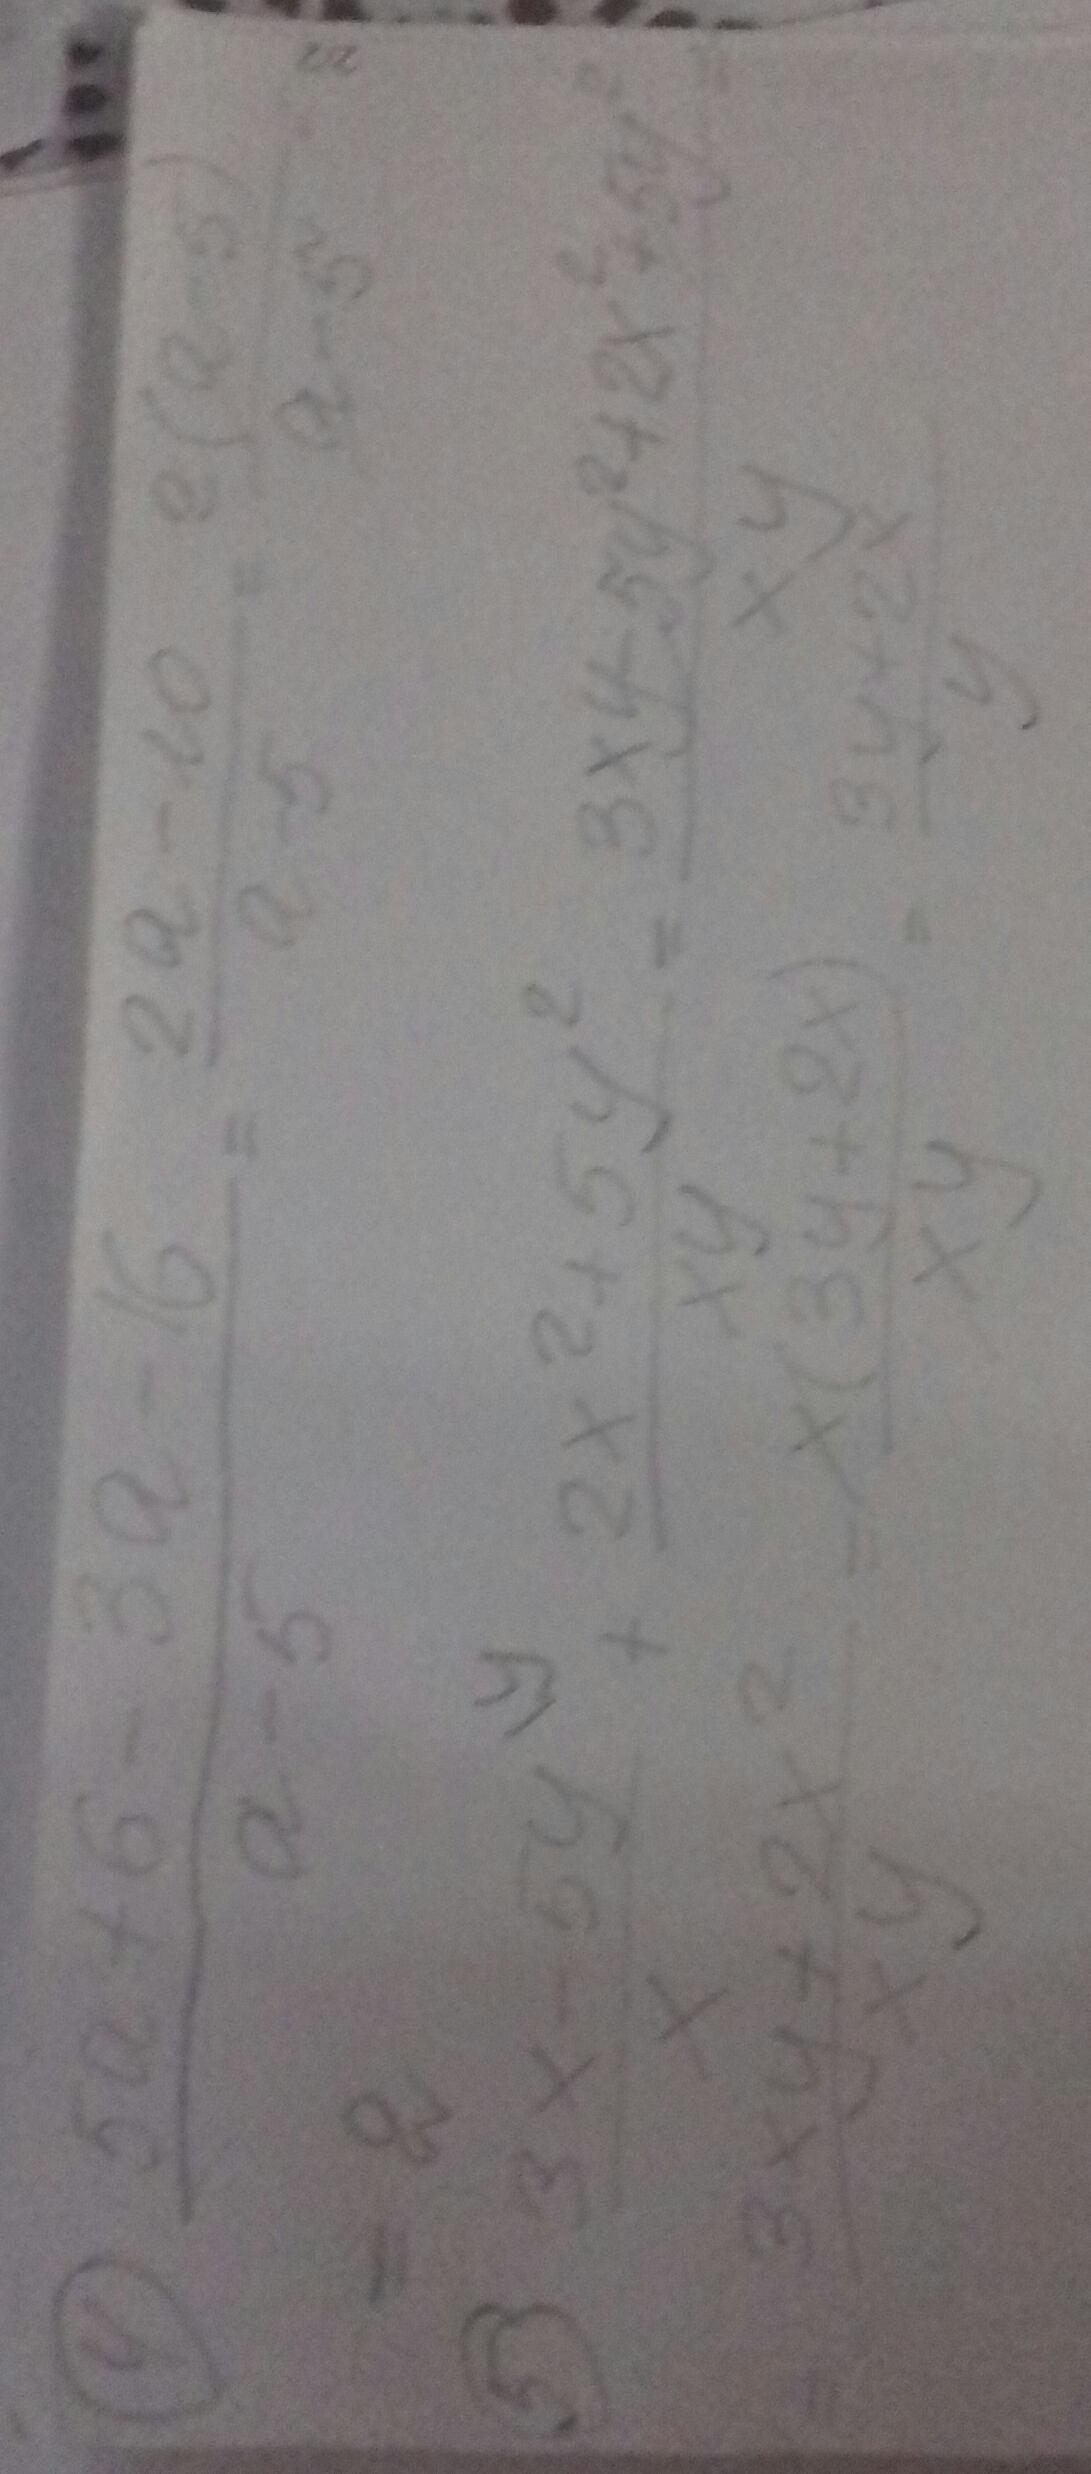 ④ (5a+6-3a-16)/(a-5) = (2a-10)/(a-5) = 2(a-5)/(a-5)
= 2
⑤ (3x-5y)/x ^y + (2x²+5y²)/(xy) = (3xy-5y²+2x²+5y²)/(xy)
= (3xy+2x²)/(xy) = x(3y+2x)/(xy) = (3y+2x)/y